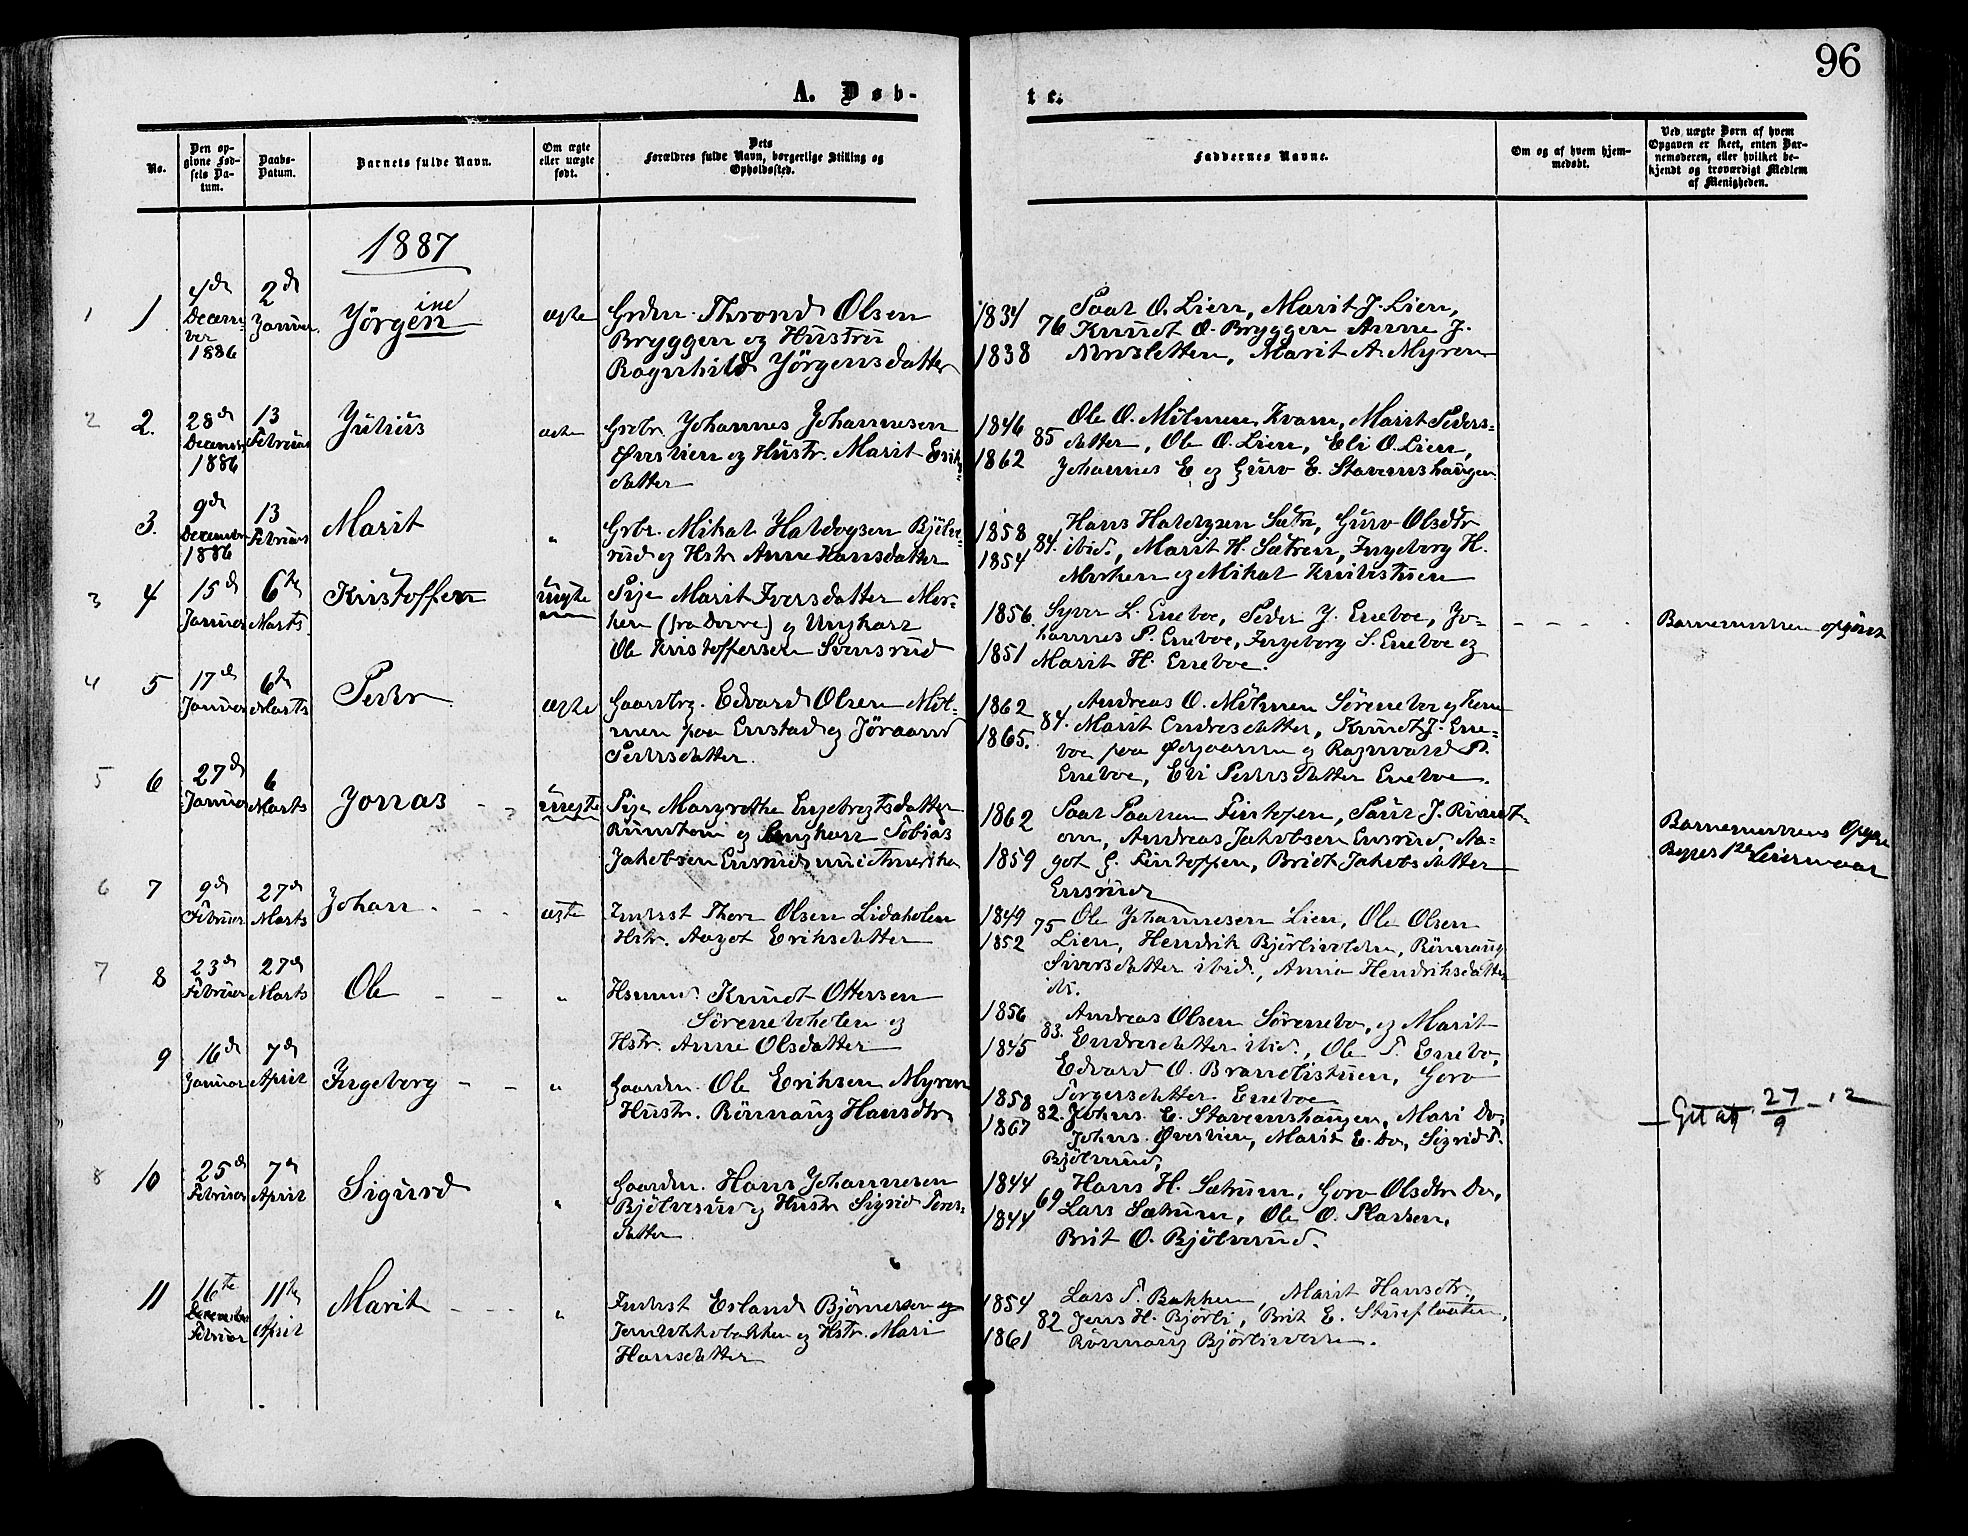 96
A. Døb-
te.
No.
Den op-
givne Fød-
sels Da-
tum.
Daabs-
Datum.
Barnets fulde Navn.
Om ægte
eller uægte
født.
Dets
Forældres fulde Navn, borgerlige Stilling og
Opholdssted.
Faddernes Navne.
Om og af hvem hjem-
medøbt.
Ved uægte Børn af hvem
Opgaven er skeet, enten Bar-
nemoderen, eller hvilket be-
kjendt og troværdigt Medlem
af Menigheden.
1887
1 1 4de Decem-
ber
1886
2de Januar.
Jörgenine
ægte
Grdm. Thrond Olsen
Bryggen og Hustru
Ragnhild Jörgensdatter
1834
1838
76
Paal O. Lien, Marit J. Lien,
Knudt O. Bryggen Anne J.
Marit A. Myren
2 2. 28de December
1886
13 Februar
Julius
ægte
Grbr. Johannes Johannesen
Øverlien og Hustr. Marit Eriks-
datter
1846
1862
85
Ole O. Mölmen, Kvam, Marit Peders-
datter, Ole O. Lien, Eli O. Lien,
Johannes E og Guro E. Stavemshaugen
3. 9de December
1886
13 Februar
Marit
"
Grbr. Mikal Haldogsen Bjölve-
rud og Hstr Anne Hansdatter
1858
1854
84.
Hans Haldogsen Sætre, Guro Olsdtr
ibid., Marit H. Sætren, Ingeborg H.
Morken og Mikal
3 4 15de Januar
6te Marts
Kristoffer
uægte
Pige Marit Iversdatter Mor-
ken (fra Dovre) og Ungkarl
Ole Kristoffersen Svensrud
1856.
1851
Syver L. Enebo, Peder J. Enebo, Jo-
hannes P. Enebo, Ingeborg S. Enebo og
Marit H. Enebo.
Barnemoderen
4 5 17de Januar
6te Marts
Peder
ægte
Gaardbrg. Edvard Olsen Möl-
men paa Enstad og Jöraand
Pedersdatter.
1862
1865.
84.
Andreas O. Mölmen Sörenebo og
Marit Endresdatter, Knudt J. Ene-
bo paa Ragnvald P.
Enebo, Eli Pedersdatter Enebo.
5 6 27de Januar
6 Marts
Jonas - ?
uægte
Pige Margrethe Engebregtsdatter
og Ungkarl Tobias
Jakobsen Ensrud nu i Amerika
1862
1859
Andreas Jakobsen Ensrud, Aa-
got Brit Jakobsdatter
Ensrud
Barnemoderens
6 7 9de Februar
27de Marts
Johan - - -
ægte
Indrst Thore Olsen Lidaholen
Hstr. Aagot Eriksdatter
1849
1852
75
Ole Johannesen Lien, Ole Olsen
Lien, Hendrik Björlivolden, Rönnaug
Siversdatter ibid., Anne Hendriksdatter
ibd.
7 8 23de Februar
27de Marts
Ole - -
"
Hsmd. Knudt Ottersen
Söreneboholen og
Hstr. Anne Olsdatter
1856
1845
83.
Andreas Olsen Sörenebo, og Marit
Endresdatter ibid., Ole P. Enebo,
Edvard O. Brandlistuen, Goro
Torgersdatter Enebo
9 16de Januar
7de April
Ingeborg - -
"
Gaardm. Ole Eriksen Myren
Hustr. Rönnaug Hansdtr.
1858
1867
82.
Johns. E. Stavemshaugen, Mari Do,
Johns. Øverlien, Marit E. Do, Sigrid T.
Bjölverud,
27/9 - 12
8 10 25de Februar
7de April
Sigurd
"
Gaardm. Hans Johannesen
Bjölverud og Hustr Sigrid Tores-
datter
1844
1844
69
Hans H. Sætrum, Goro Olsdtr Do,
Lars Sætrum, Ole O. Flaaten,
Brit O. Bjölverud.
11 16te December
Februar
11te April
Marit - - -
"
Indrst Erland Björnersen og
og Hstr. Mari
Hansdatter
1854
1861
82
Lars P. Bakken, Marit Hansdtr.,
Jens H. Bjorli, Brit E. Stueflaaten,
Rönnaug